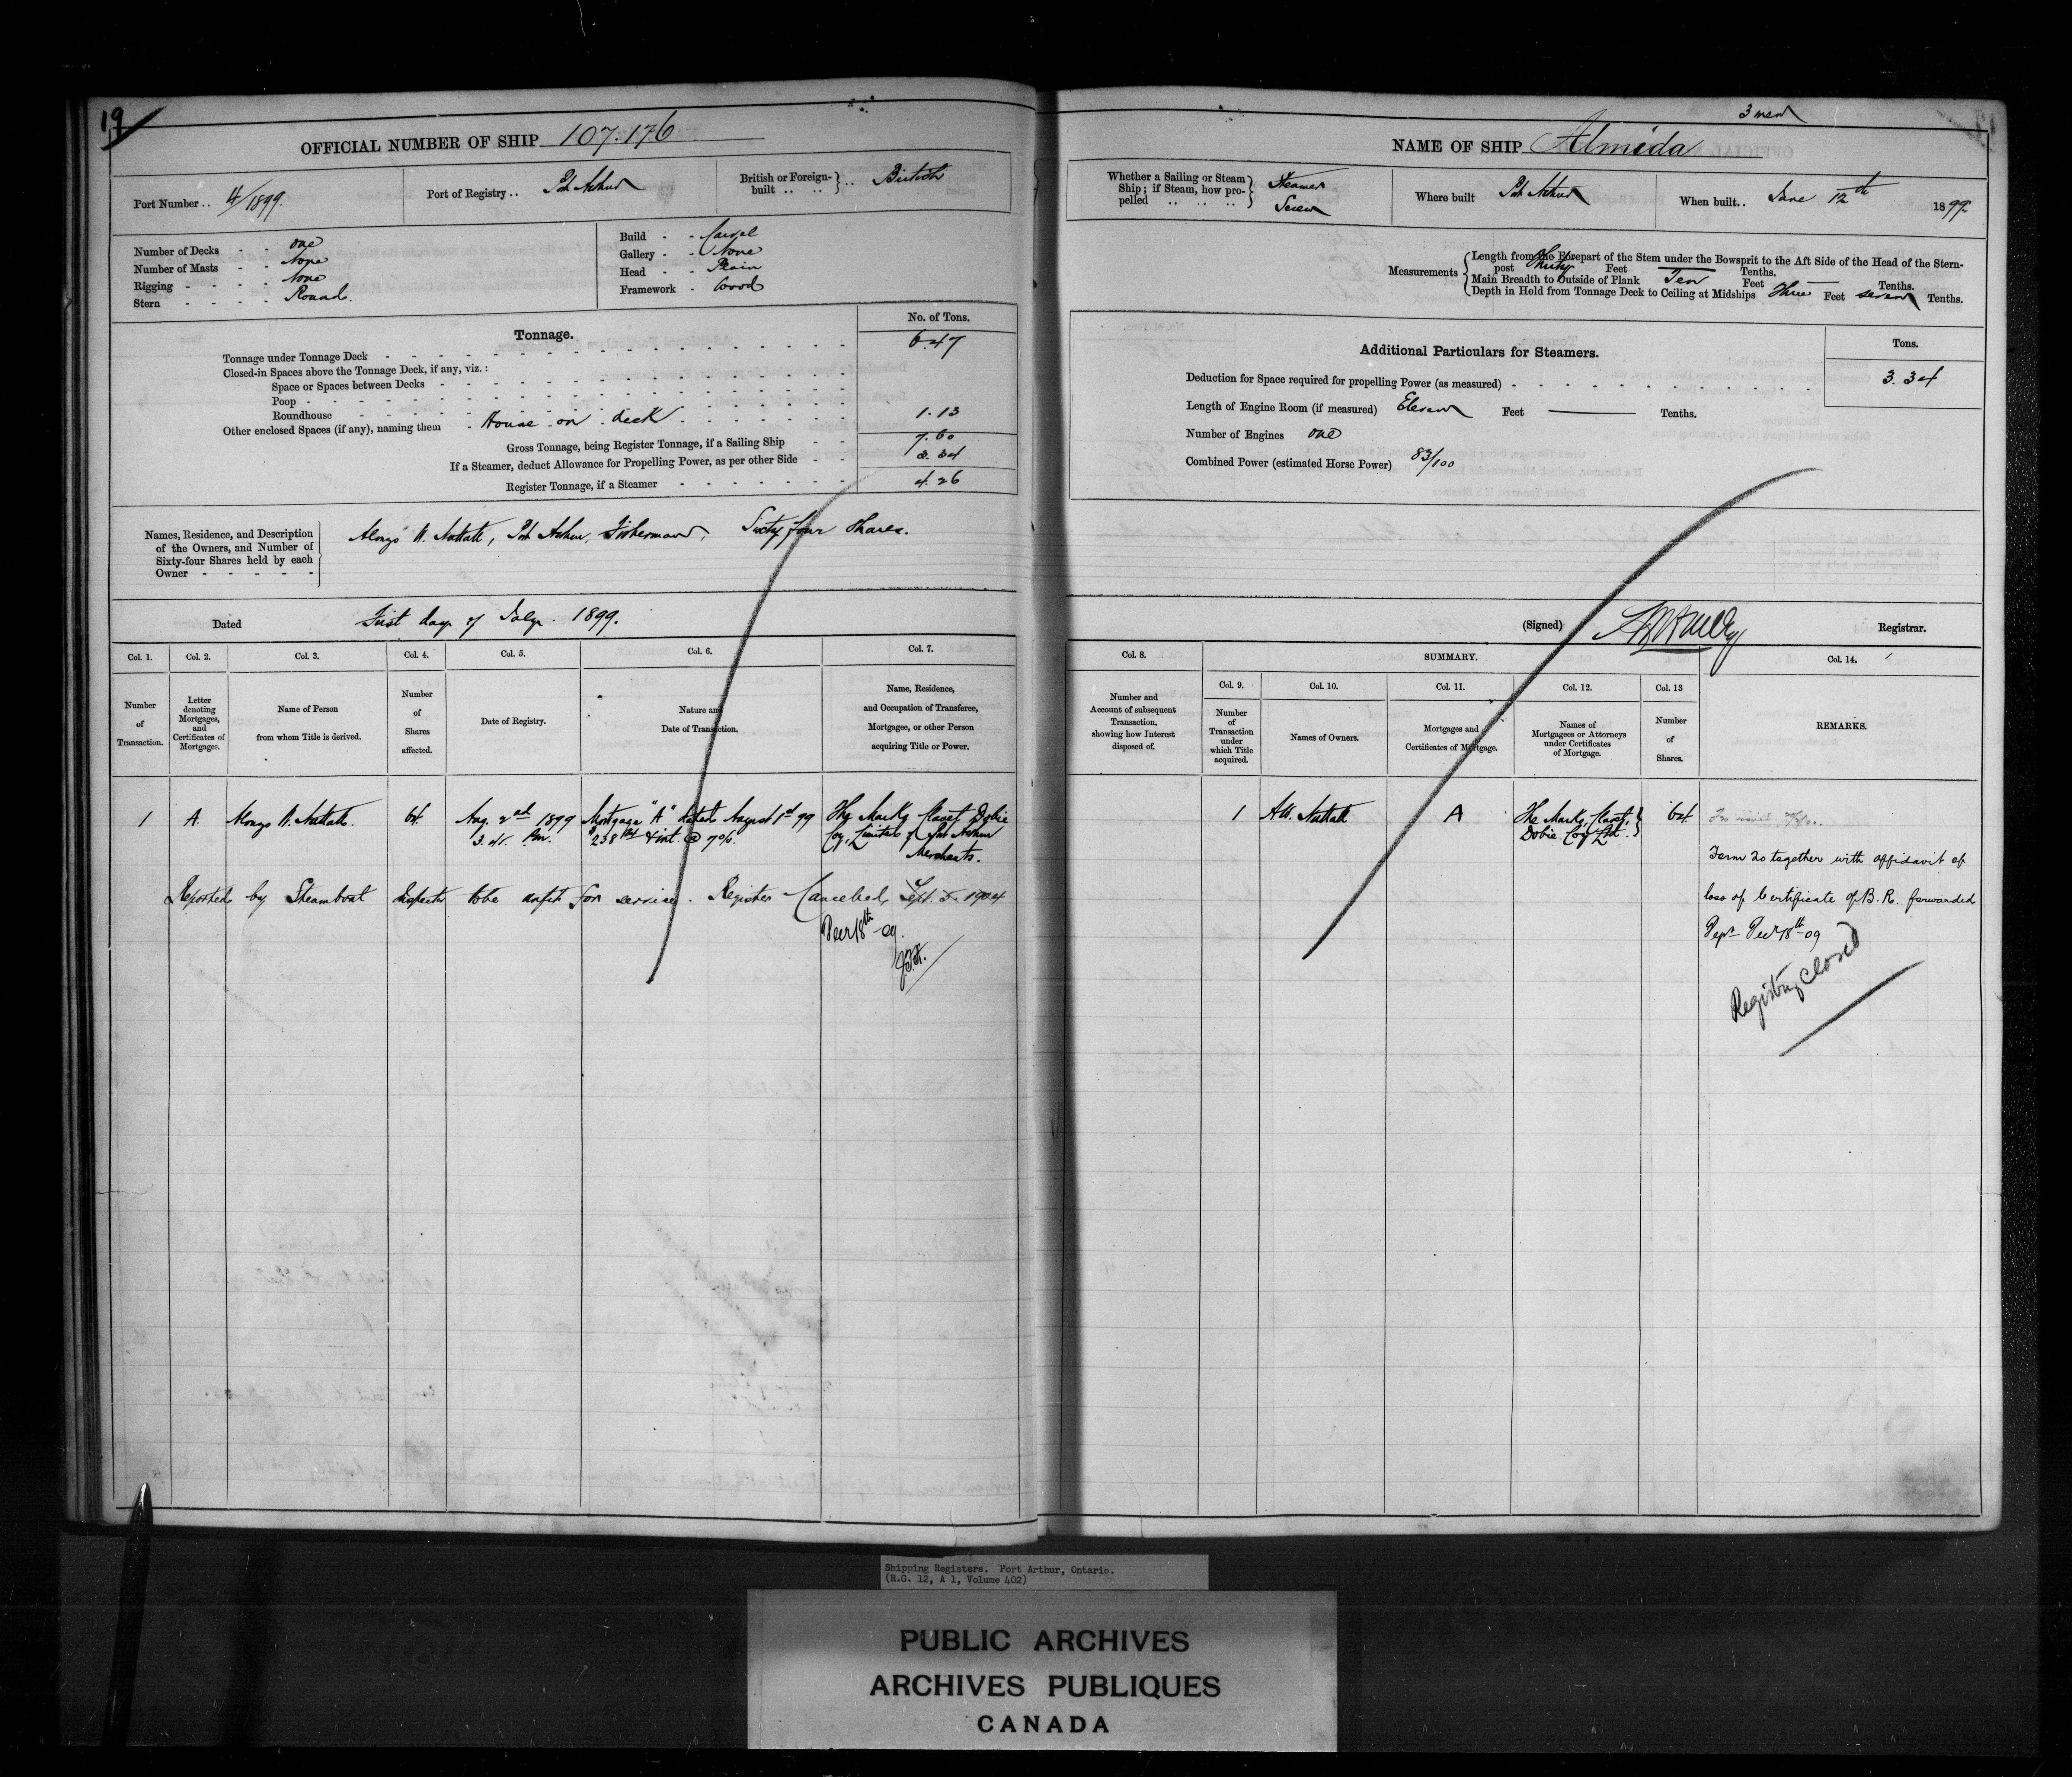 19
OFFICIAL NUMBER OF SHIP 107.176
Port Number .. 4/1899.
Port of Registry .. Port Arthur
British or Foreign-built .. .. British
Number of Decks - - one
Number of Masts - - None
Rigging - - - - None
Stern - - - - Round.
Build - - Carvel
Gallery - - None
Head - - Plain
Framework - Wood
Tonnage.
No. of Tons.
Tonnage under Tonnage Deck 6.47
Closed-in Spaces above the Tonnage Deck, if any, viz.:
Space or Spaces between Decks
Poop
Roundhouse
Other enclosed Spaces (if any), naming them - House on deck 1.13
Gross Tonnage, being Register Tonnage, if a Sailing Ship 7.60
If a Steamer, deduct Allowance for Propelling Power, as per other Side 3.34
Register Tonnage, if a Steamer 4.26
Names, Residence, and Description of the Owners, and Number of Sixty-four Shares held by each Owner
Port Arthur, Fisherman, Sixty four Shares.
Dated First day of July 1899.
Col. 1. Col. 2. Col. 3. Col. 4. Col. 5. Col. 6. Col. 7.
Number of Transaction.
Letter denoting Mortgages, and Certificates of Mortgages.
Name of Person from whom Title is derived.
Number of Shares affected.
Date of Registry.
Nature and Date of Transaction.
Name, Residence, and Occupation of Transferee, Mortgagee, or other Person acquiring Title or Power.
1 A. 64 Aug. 2nd 1899 Mortgage "A" dated August 1st 99 The Marks, Dobie
3. Pm. $238 & int. @ 7% Coy, Limited of Port Arthur
Merchants.
Reported by Steamboat Inspector to be unfit for service. Register Cancelled, Sept. 5. 1904
Decr 18th - 09.
3 men
NAME OF SHIP Almeda
Whether a Sailing or Steam Ship; if Steam, how propelled .. .. .. Steamer Screw
Where built Port Arthur
When built .. June 12th 1899
Measurements
Length from the Forepart of the Stem under the Bowsprit to the Aft Side of the Head of the Stern-
post Thirty Feet — Tenths.
Main Breadth to Outside of Plank Ten Feet — Tenths.
Depth in Hold from Tonnage Deck to Ceiling at Midships Three Feet seven Tenths.
Additional Particulars for Steamers.
Tons.
Deduction for Space required for propelling Power (as measured) 3.34
Length of Engine Room (if measured) Eleven Feet — Tenths.
Number of Engines one
Combined Power (estimated Horse Power) 83/100
(Signed) Registrar.
Col. 8. SUMMARY. Col. 14.
Col. 9. Col. 10. Col. 11. Col. 12. Col. 13
Number and Account of subsequent Transaction, showing how Interest disposed of.
Number of Transaction under which Title acquired.
Names of Owners.
Mortgages and Certificates of Mortgage.
Names of Mortgagees or Attorneys under Certificates of Mortgage.
Number of Shares.
REMARKS.
1 A The Marks, 64
Dobie Coy Ltd.
Form 20 together with affidavit of
loss of Certificate of B. R. forwarded
Dept Decr 18th - 09
Registry closed
Shipping Registers. Port Arthur, Ontario.
(R.G. 12, A 1, Volume 402)
PUBLIC ARCHIVES
ARCHIVES PUBLIQUES
CANADA